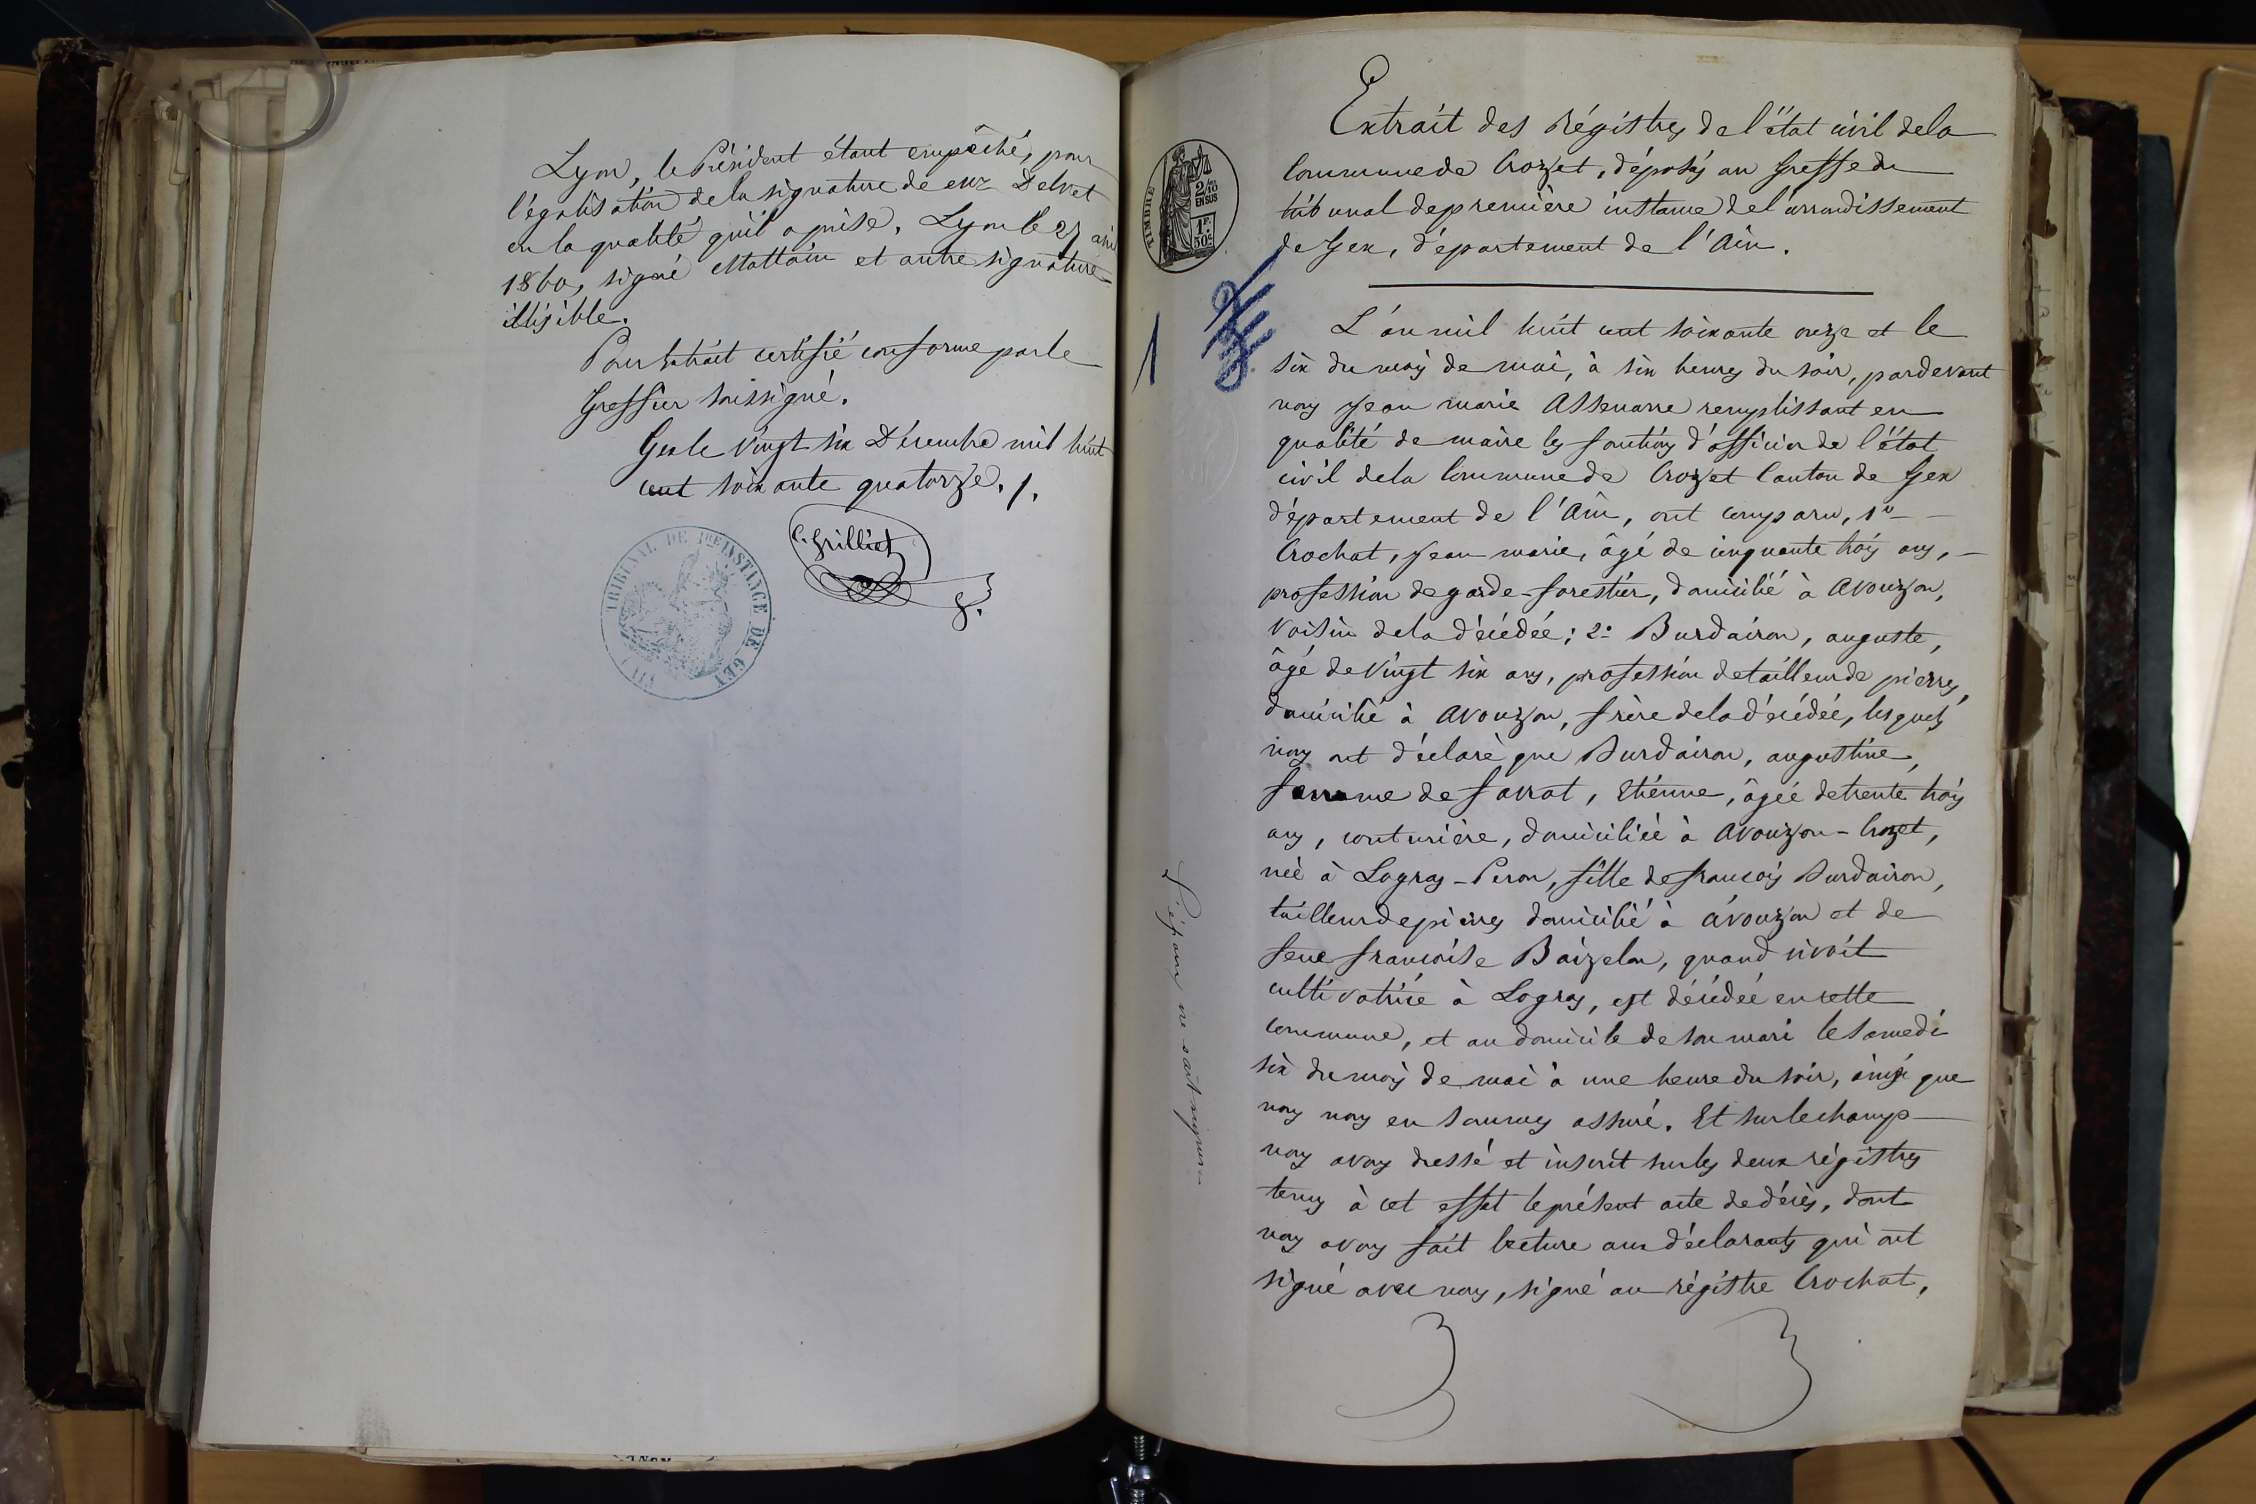 Lyon, le Président étant empêché, pour
légalisation de la signature de enz Delvet
en la qualité qu'il a prise. Lyon le 27 avril
1860, signé Mattain et autre signature
illisible.
Pour Extrait certifié conforme par le
Greffier soussigné.
Gex le vingt six Décembre mil huit
cent soixante quatorze. /.
C. Grilliet
TRIBUNAL DE 1RE INSTANCE DE GEX
Extrait des Régistres de l'état civil de la
Commune de Crozet, déposés au Greffe du
tribunal de première instance de l'arrondissement
de Gex, département de l'Ain.
TIMBRE
2/10
EN SUS
1F.
50c
1
L'an mil huit cent soixante onze et le
six du mois de mai, à six heures du soir, pardevant
nous Jean marie Assenarre remplissant en
qualité de maire les fontions d'officier de l'état
civil de la Commune de Crozet Canton de Gex
département de l'Ain, ont comparu, 1o
Crochat, Jean marie, âgé de cinquante trois ans,
profession de garde-forestier, domicilié à Avouzon,
Voisin de la décédée; 2o Burdairon, auguste,
âgé de vingt six ans, profession de tailleur de pierres,
domicilié à Avouzon, frère de la décédée, lesquels
nous ont déclaré que Burdairon, augustine,
femme de favrat, Etienne, âgée de trente trois
ans, couturière, domiciliée à Avouzon-Crozet,
née à Logras-Peron, fille de françois Burdairon,
tailleur de pierres domicilié à Avouzon et de
feue françoise Baizelon, quand vivait
cultivatrice à Logras, est décédée en cette
commune, et au domicile de son mari le samedi
six du mois de mai à une heure du soir, ainsi que
nous nous en sommes assuré. Et sur le champ
nous avons dressé et inscrit sur les deux régistres
tenus à cet effet le présent acte de décès, dont
nous avons fait lecture aux déclarants qui ont
signé avec nous, signé au régistre Crochat,
L'époux ne sait signer